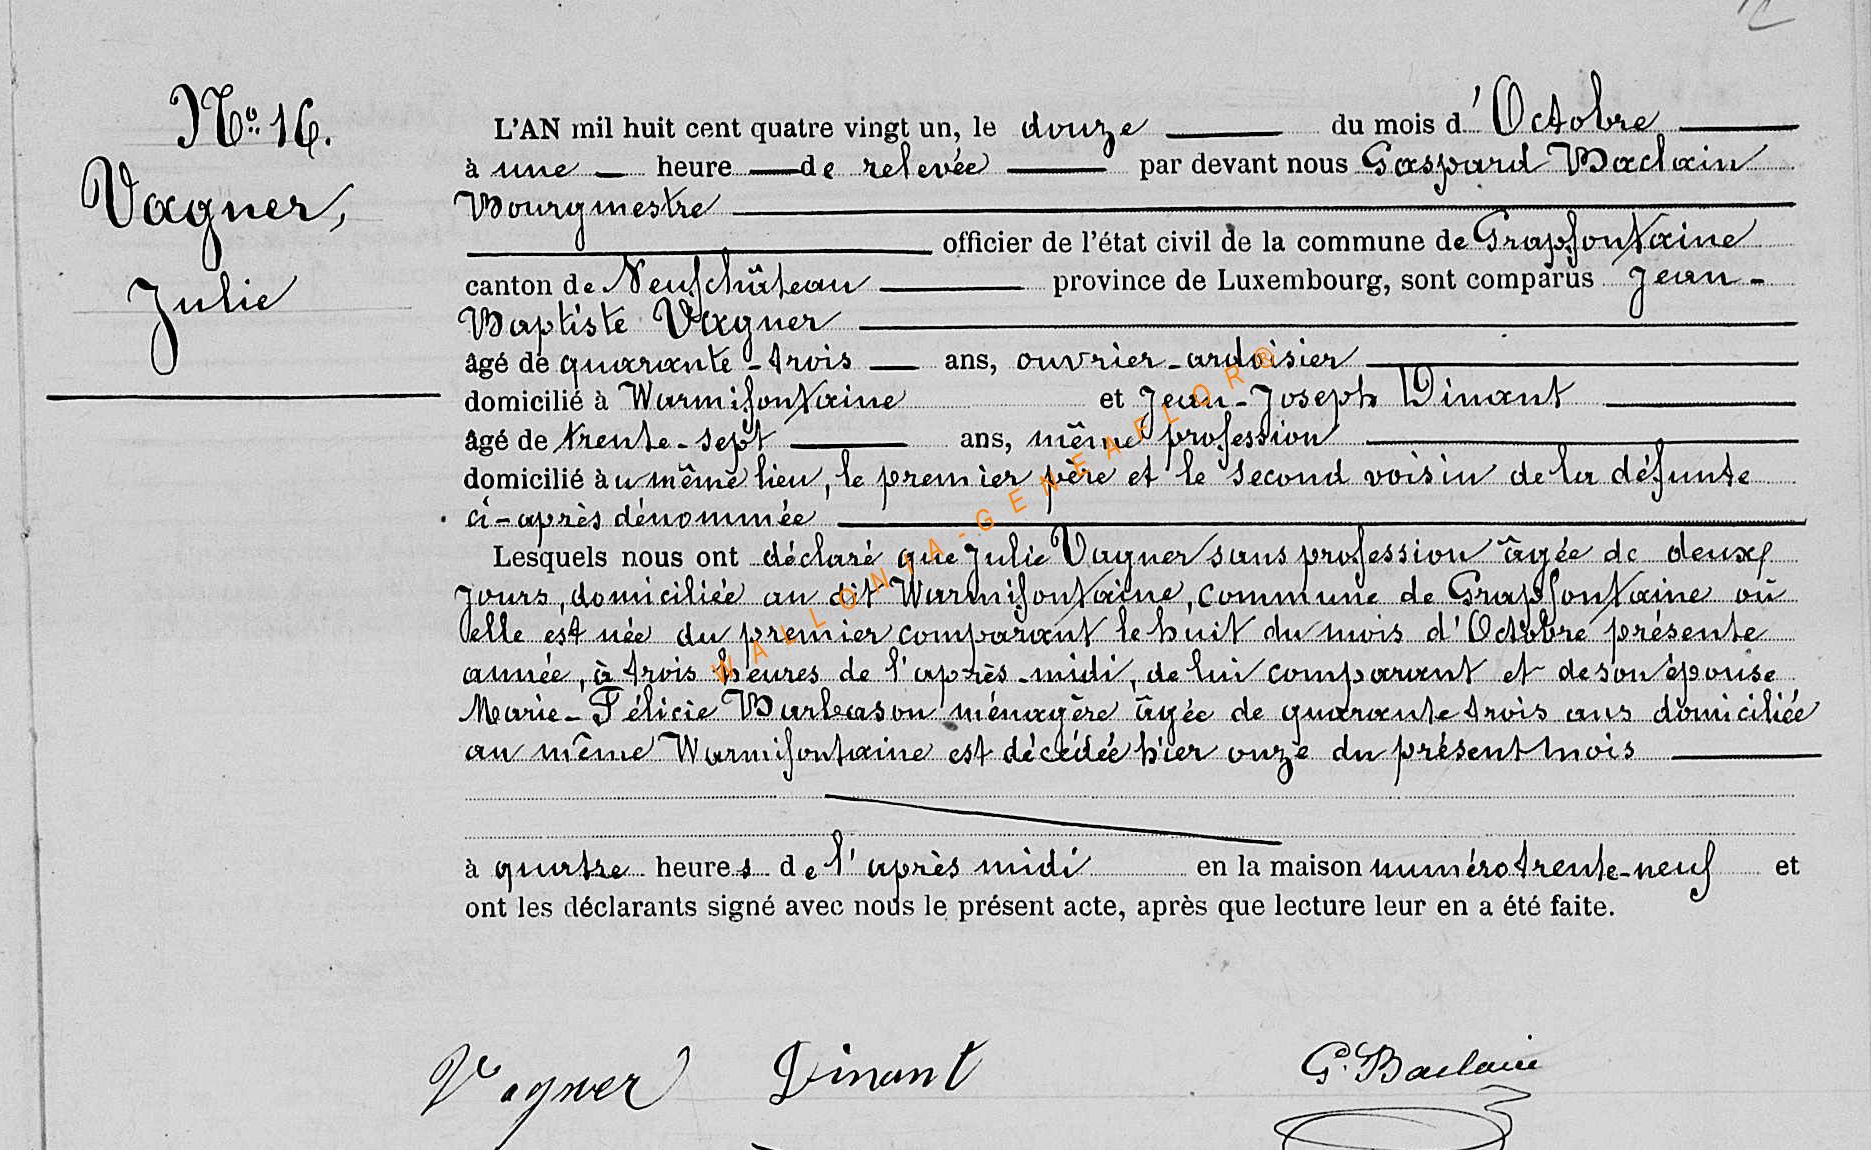 No. 16.
Vagner,
Julie
L'AN mil huit cent quatre vingt un, le douze du mois d'Octobre
à une heure de relevée par devant nous Gaspard Baclain
Bourgmestre
officier de l'état civil de la commune de Grapfontaine
canton de Neufchâteau province de Luxembourg, sont comparus Jean-
Baptiste Vagner
âgé de quarante-trois ans, ouvrier-ardoisier
domicilié à Warmifontaine et Jean-Joseph Dinant
âgé de trente-sept ans, même profession
domicilié au même lieu, le premier père et le second voisin de la défunte
ci-après dénommée
Lesquels nous ont déclaré que Julie Vagner sans profession âgée de deux
jours, domiciliée au dit Warmifontaine, commune de Grapfontaine où
elle est née du premier comparant le huit du mois d'Octobre présente
année, à trois heures de l'après-midi, de lui comparant et de son épouse
Marie-Félicie Burleason ménagère âgée de quarante trois ans domiciliée
au même Warmifontaine est décédée hier onze du présent mois
à quatre heures de l'après midi en la maison numéro trente-neuf et
ont les déclarants signé avec nous le présent acte, après que lecture leur en a été faite.
Vagner Dinant G. Baclain
WALLONIA-GENEAFLOR®